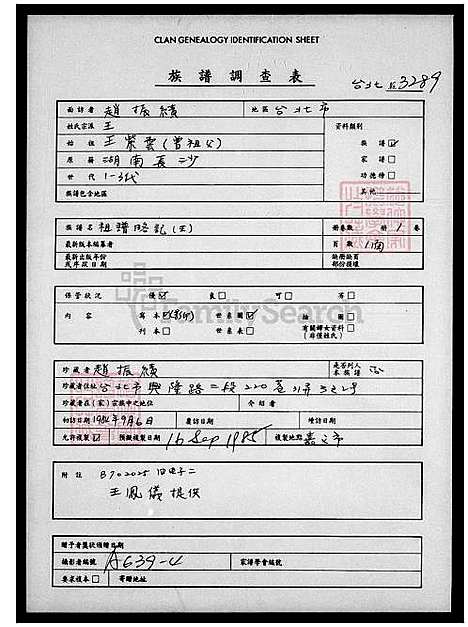 CLAN GENEALOGY IDENTIFICATION SHEET
族譜調查表
台北 3289
面訪者 趙振績 地區 台北市
姓氏宗派 王 資料類別
始祖 王紫雲(曾祖父) 族譜 ☑
原籍 湖南長沙 家譜 □
世代 1-3代 功德榜 □
族譜包含地區 其他
族譜名 祖譜略記(王) 冊卷數 冊 1 卷
最新版本編纂者 頁數 1面
最新出版年份或序跋日期 缺冊缺頁部份損壞
保管狀況 優 ☑ 良 □ 可 □ 劣 □
內容 寫本 ☑(影印) 世系圖 ☑ 插圖 □
刊本 □ 世系表 □ 有關婦女資料(非僅姓氏) □
FamilySearch
珍藏者 趙振績 是否列入本族譜 否
珍藏者住址 台北市興隆路二段220巷
珍藏者在(家)宗族中之地位 介紹者
初訪日期 1984年9月6日 覆訪日期 續訪日期
允許複製 ☑ 預擬複製日期 16 Sep 1985 複製地點 嘉之市
附註 B702025
王鳳儀提供
贈予者獎狀頒贈日期
攝影者編號 A639-4 家譜學會編號
要求複本 □ 寄贈地址